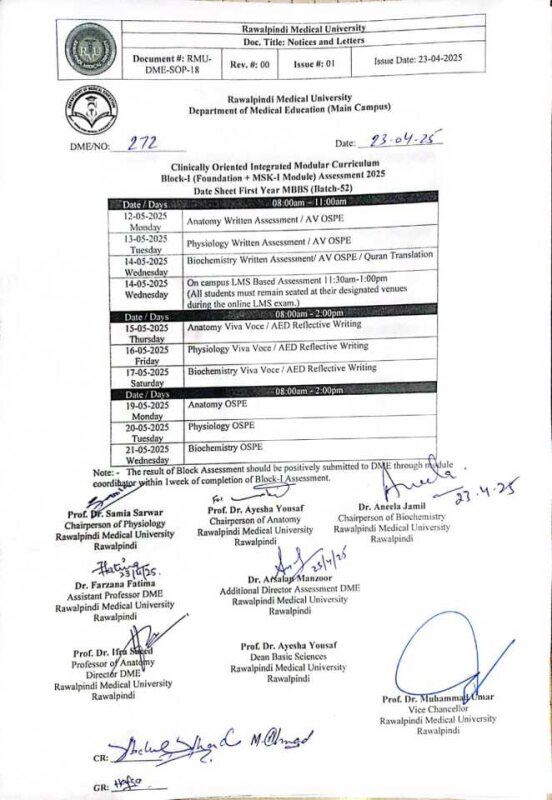 Rawalpindi Medical University
Doc. Title: Notices and Letters
Document #: RMU-
DME-SOP-18
Rev. #: 00
Issue #: 01
Issue Date: 23-04-2025
Rawalpindi Medical University
Department of Medical Education (Main Campus)
DME/NO: 272
Date: 23-04-25
Clinically Oriented Integrated Modular Curriculum
Block-I (Foundation + MSK-I Module) Assessment 2025
Date Sheet First Year MBBS (Batch-52)
Date / Days 08:00am – 11:00am
12-05-2025
Monday
Anatomy Written Assessment / AV OSPE
13-05-2025
Tuesday
Physiology Written Assessment / AV OSPE
14-05-2025
Wednesday
Biochemistry Written Assessment/ AV OSPE / Quran Translation
14-05-2025
Wednesday
On campus LMS Based Assessment 11:30am-1:00pm
(All students must remain seated at their designated venues
during the online LMS exam.)
Date / Days 08:00am - 2:00pm
15-05-2025
Thursday
Anatomy Viva Voce / AED Reflective Writing
16-05-2025
Friday
Physiology Viva Voce / AED Reflective Writing
17-05-2025
Saturday
Biochemistry Viva Voce / AED Reflective Writing
Date / Days 08:00am - 2:00pm
19-05-2025
Monday
Anatomy OSPE
20-05-2025
Tuesday
Physiology OSPE
21-05-2025
Wednesday
Biochemistry OSPE
Note: - The result of Block Assessment should be positively submitted to DME through module
coordinator within 1week of completion of Block-I Assessment.
Prof. Dr. Samia Sarwar
Chairperson of Physiology
Rawalpindi Medical University
Rawalpindi
For
Prof. Dr. Ayesha Yousaf
Chairperson of Anatomy
Rawalpindi Medical University
Rawalpindi
Aneela
23.4.25
Dr. Aneela Jamil
Chairperson of Biochemistry
Rawalpindi Medical University
Rawalpindi
23/4/25.
Dr. Farzana Fatima
Assistant Professor DME
Rawalpindi Medical University
Rawalpindi
Dr. Arsalan Manzoor
Additional Director Assessment DME
Rawalpindi Medical University
Rawalpindi
Prof. Dr. Ifra Saeed
Professor of Anatomy
Director DME
Rawalpindi Medical University
Rawalpindi
Prof. Dr. Ayesha Yousaf
Dean Basic Sciences
Rawalpindi Medical University
Rawalpindi
Prof. Dr. Muhammad Umar
Vice Chancellor
Rawalpindi Medical University
Rawalpindi
CR:
GR: Hafsa